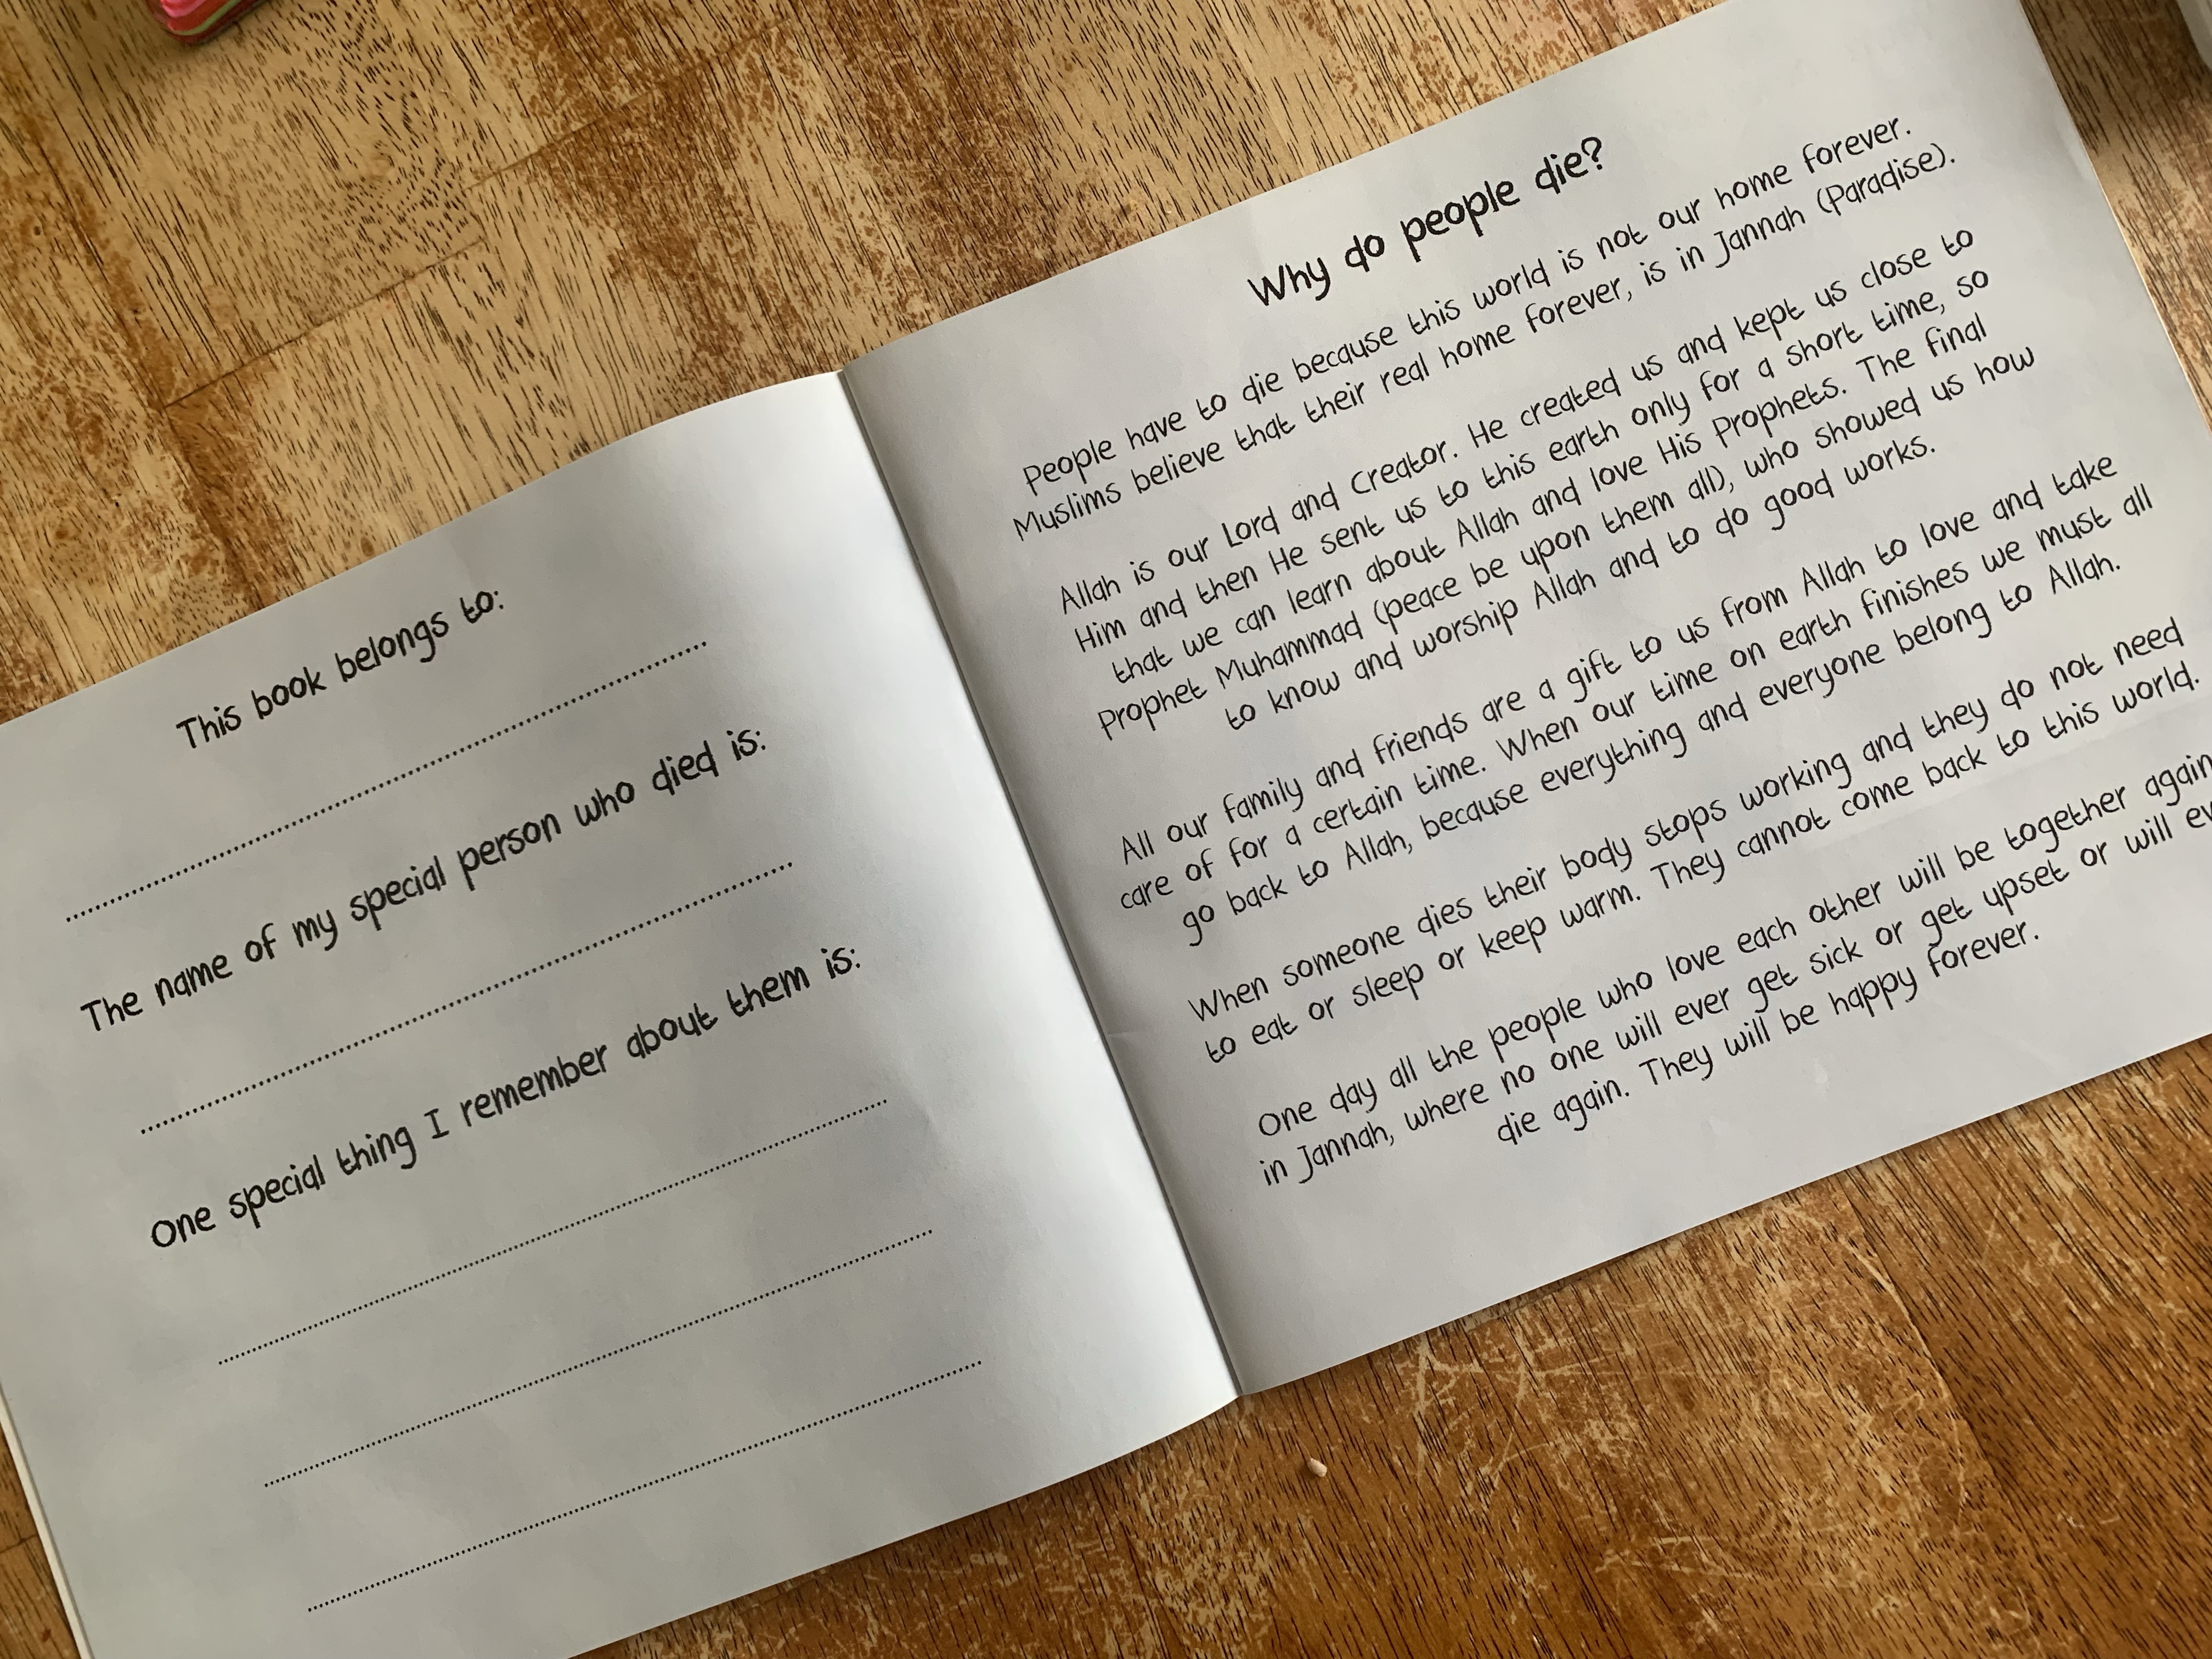 This book belongs to:
The name of my special person who died is:
One special thing I remember about them is:
Why do people die?
People have to die because this world is not our home forever.
Muslims believe that their real home forever, is in Jannah (Paradise).
Allah is our Lord and Creator. He created us and kept us close to
Him and then He sent us to this earth only for a short time, so
that we can learn about Allah and love His Prophets. The final
Prophet Muhammad (peace be upon them all), who showed us how
to know and worship Allah and to do good works.
All our family and friends are a gift to us from Allah to love and take
care of for a certain time. When our time on earth finishes we must all
go back to Allah, because everything and everyone belong to Allah.
When someone dies their body stops working and they do not need
to eat or sleep or keep warm. They cannot come back to this world.
One day all the people who love each other will be together again
in Jannah, where no one will ever get sick or get upset or will
die again. They will be happy forever.